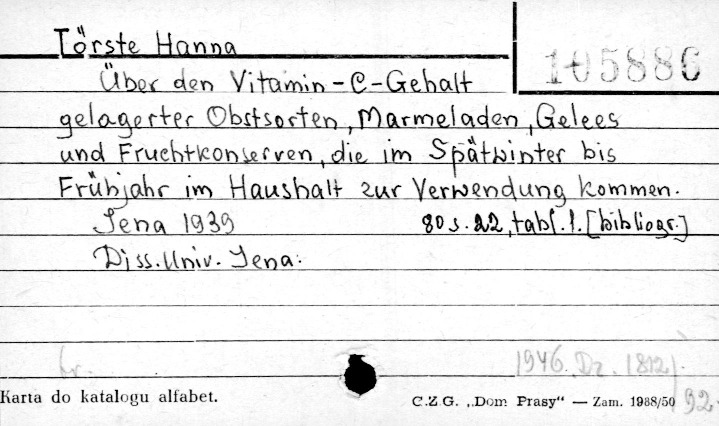 Törste Hanna
105886
Über den Vitamin-C-Gehalt
gelagerter Obstsorten, Marmeladen, Gelees
und Fruchtkonserven, die im Spätwinter bis
Frühjahr im Haushalt zur Verwendung kommen.
Jena 1939 80 s. 22, tabl. 1. [bibliogr.]
Diss. Univ. Jena.
br. 1946. Dz. 1812/.
92.
Karta do katalogu alfabet. C.Z.G. „Dom Prasy“ — Zam. 1988/50